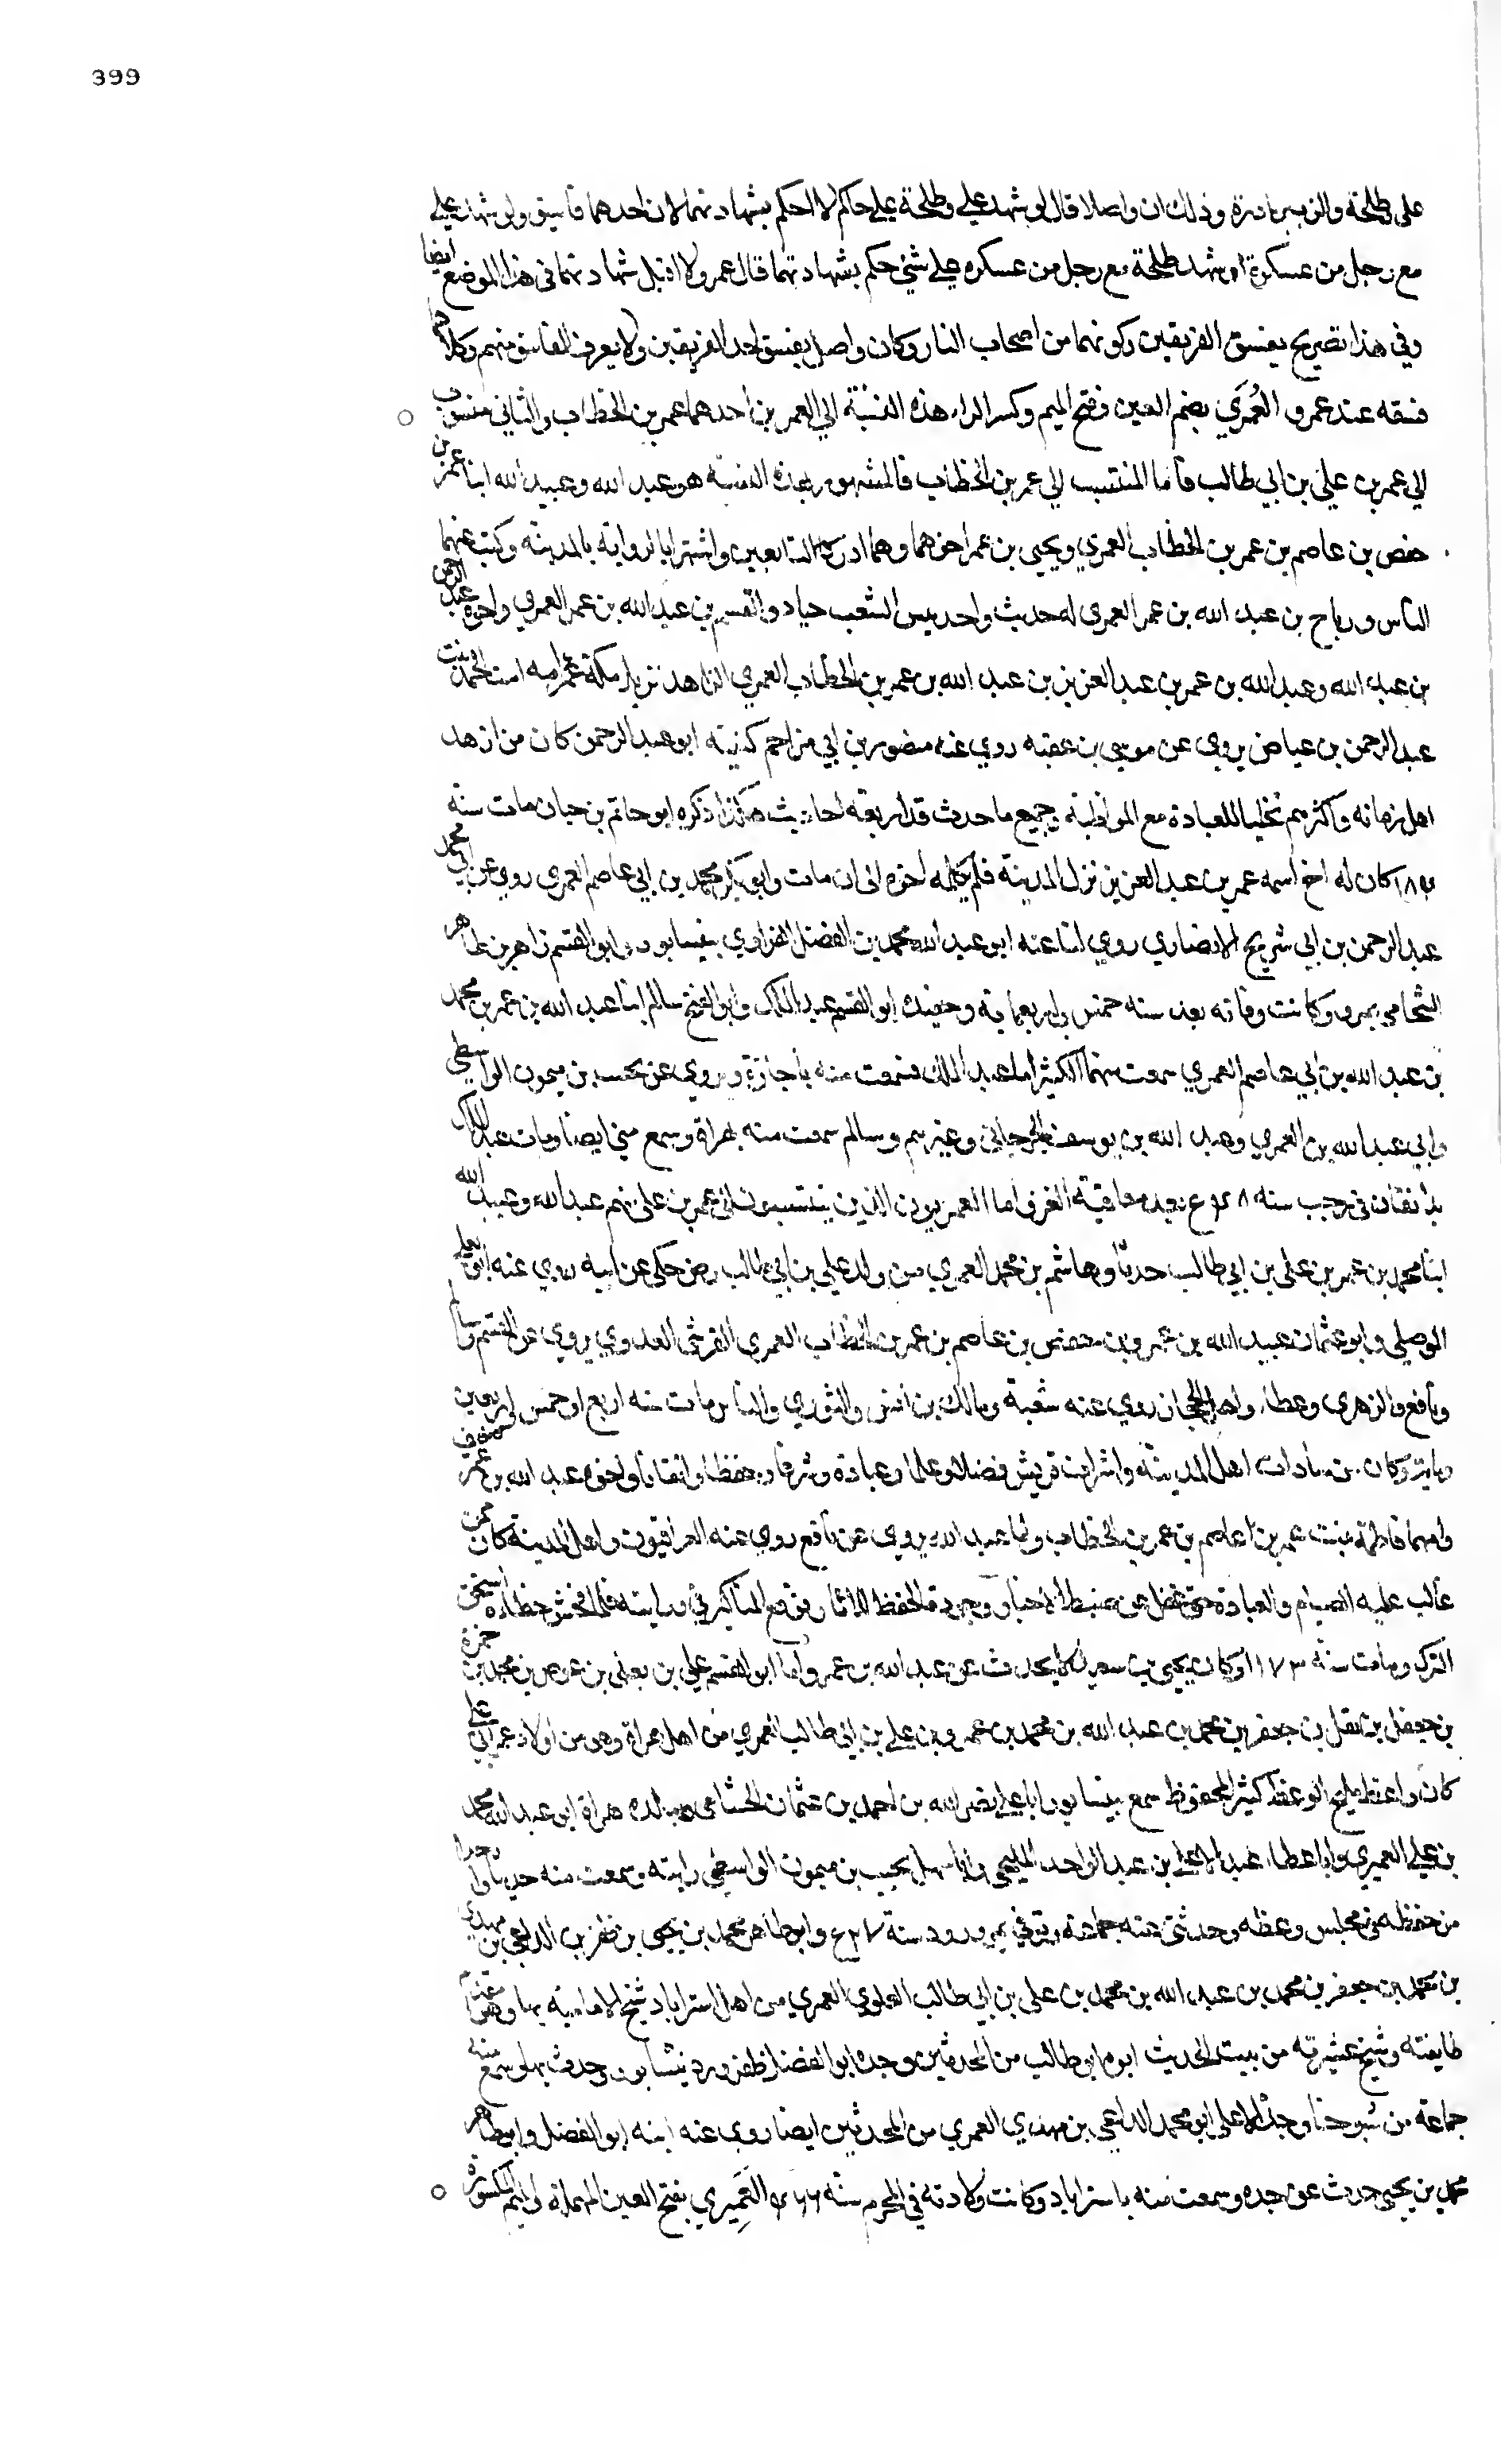 399
على طلحة والزبير بادرة وذلك ان واصلا قال لو شهد علي وطلحة على حاكم لا احكم بشهادتهما لان احدهما فاسق ولو شهد علي
مع رجل من عسكره او شهد طلحة مع رجل من عسكره على شئ حكم بشهادتهما قال عمرو لا اقبل شهادتهما في هذا الموضع ايضا
وفي هذا تصريح بفسق الفريقين وكونهما من اصحاب النار وكان واصل يفسق احد الفريقين ولا يعرف الفاسق منهم وكلا
فسقه عند عمرو العُمَري بضم العين وفتح الميم وكسر الراء هذه النسبة الي العمرين احدهما عمر بن الخطاب والثاني منسوب
الي عمر بن علي بن ابي طالب فاما المنتسب الي عمر بن الخطاب فالمشهور بهذه النسبة هو عبد الله وعبيد الله ابنا عمر بن
حفص بن عاصم بن عمر بن الخطاب العمري ويحيى بن عمر اخوهما وهما ادركا التابعين واشتهرا بالرواية بالمدينة وكتب عنهما
الناس ورباح بن عبد الله بن عمر العمري له حديث واحد والقسم بن عبد الله بن عمر العمري واخوه عبد الرحمن
بن عبد الله وعبد الله بن عمر بن عبد العزيز بن عبد الله بن عمر بن الخطاب العمري الزاهد امه امت الحميد بنت
عبد الرحمن بن عياض يروي عن موسى بن عقبه روي عنه منصور بن ابي مزاحم كنيته ابو عبد الرحمن كان من ازهد
اهل زمانه واكثرهم تخليا للعبادة مع المواظبة وجميع ما حدث قدر اربعة احاديث هكذا ذكره ابو حاتم بن حبان مات سنه
كان له اخ اسمه عمر بن عبد العزيز نزل المدينة فلم يكلمه اخوه الى ان مات وابو بكر محمد بن ابي عاصم العمري روي عن ابي محمد
عبد الرحمن بن ابي شريح الانصاري روي لنا عنه ابو عبد الله محمد بن الفضل الفراوي بنيسابور وابو القسم زاهر بن طاهر
الشحامي بمرو وكانت وفاته بعد سنه خمس واربعماية وحفيده ابو القسم عبد الملك وابو الفتح سالم ابنا عبد الله بن عمر بن محمد
بن عبد الله بن ابي عاصم العمري سمعت منهما الكثير اما عبد الملك فسمعت منه باجازة ويروي عن نجيب بن ميمون الواسطي
وابي عبد الله بن العمري وعبد الله بن يوسف الجرجاني وغيرهم وسالم سمعت منه بهراة وسمع مني ايضا ومات عبد الملك
في رجب سنه اما العمريون الذين ينتسبون الى عمر بن علي منهم عبد الله وعبيد الله
ابنا محمد بن عمر بن علي بن ابي طالب حدثا وهاشم بن محمد العمري من ولد علي بن ابي طالب رض حكى عن ابيه روي عنه ابو يعلي
الموصلي وابو عثمان عبيد الله بن عمرو بن حفص بن عاصم بن عمر بن الخطاب العمري القرشي العدوي يروي عن القسم وسالم
ونافع والزهري وعطاء واهل الحجاز روي عنه شعبة ومالك بن انس والثوري والناس مات سنه اربع او خمس واربعين
وماية وكان من سادات اهل المدينة واشراف قريش فضلا وعلما وعبادة وشرفا وحفظا واتقانا واخوه عبد الله بن عمر
وامهما فاطمة بنت عمر بن عاصم بن عمر بن الخطاب واما عبد الله يروي عن نافع روي عنه العراقيون واهل المدينة كان ممن
غالب عليه الصيام والعبادة حتى غفل عن ضبط الاخبار وجودة الحفظ للاثار فوقع المناكير في روايته فلما فحش خطاءه استحق
الترك ومات سنه ١٧٣ وكان يحيى بن سعيد لا يحدث عن عبد الله بن عمر واما ابو القسم علي بن يعلى بن عوض بن محمد بن حمزة
بن جعفر بن محمد بن عبد الله بن محمد بن عمر بن علي بن ابي طالب العمري من اهل هراة وهو من اولاد عمر بن علي
كان واعظا مليح الوعظ كثير المحفوظ سمع بنيسابور ابا علي نصر الله بن احمد بن عثمان الخشنامي وببلده هراة ابو عبد الله محمد
بن علي العميري وابا عطاء عبد الاعلى بن عبد الواحد المليحي وابا سهل نجيب بن ميمون الواسطي رايته وسمعت منه حديثا واحدا
من حفظه في مجلس وعظه وحدثني عنه جماعة وتوفي بمرورود سنة وابو طاهر محمد بن يحيى بن ظفر بن الداعي بن مهدي
بن محمد بن جعفر بن محمد بن عبد الله بن محمد بن علي بن ابي طالب العلوي العمري من اهل استراباد شيخ الامامية بها وهو مقدم
طايفته وشيخ عشيرته من بيت الحديث ابوه ابو طالب من المحدثين وجده ابو الفضل ظفر ورد نيشابور وحدث بها وسمع منه
جماعة من شيوخنا وجد الاعلى ابو محمد الداعي بن مهدي العمري من المحدثين ايضا روي عنه ابنه ابو الفضل وابو طاهر
محمد بن يحيى حدث عن جده وسمعت منه باستراباد وكانت ولادته في المحرم سنة العَمِيري بفتح العين المهملة والميم المكسورة